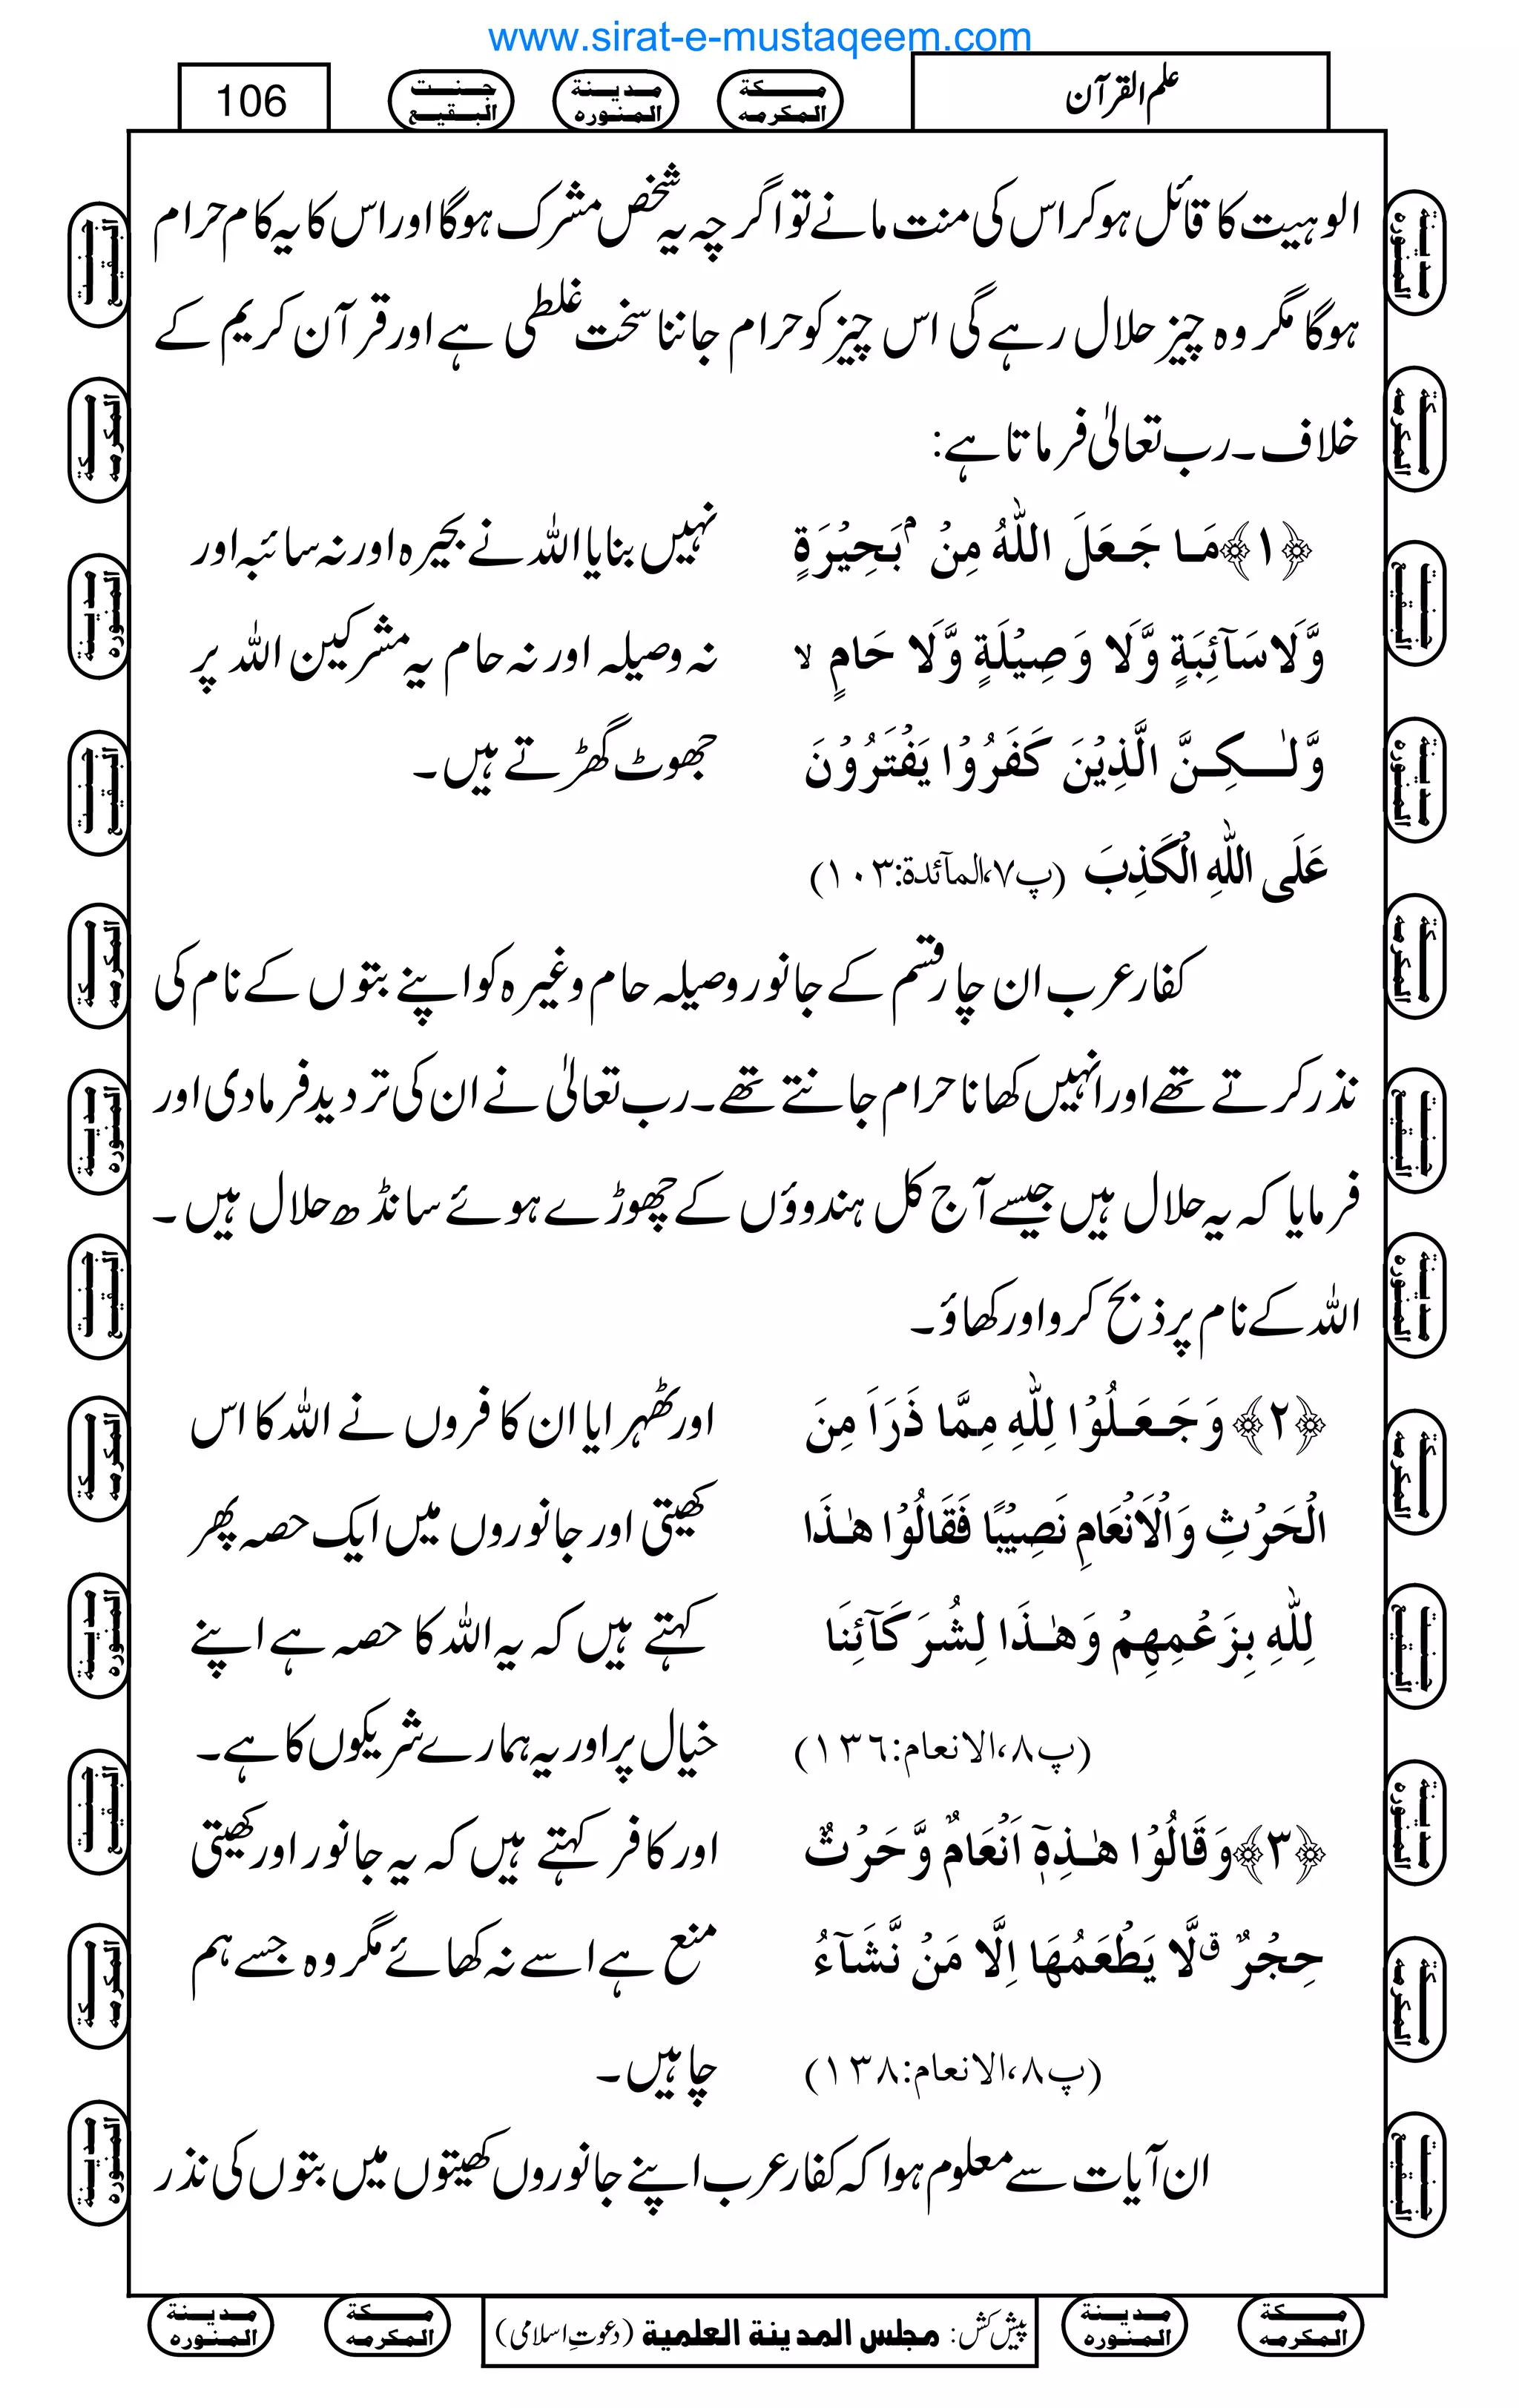 www.sirat-e-mustaqeem.com
علم القرآن
مكة المكرمه
مدينة المنوره
جنت البقيع
106
الوہیت کا قائل ہو کر اس کی منت مانے تو اگرچہ یہ شخص مشرک ہوگا اور اس کا یہ کام حرام
ہوگا مگر وہ چیز حلال رہے گی اس چیز کو حرام جاننا سخت غلطی ہے اور قرآن کریم کے
خلاف۔ رب تعالیٰ فرماتا ہے:
﴿۱﴾ مَا جَعَلَ اللّٰهُ مِنْۢ بَحِيْرَةٍ
وَّلَا سَآئِبَةٍ وَّلَا وَصِيْلَةٍ وَّلَا حَامٍ ۙ
وَّلٰكِنَّ الَّذِيْنَ كَفَرُوْا يَفْتَرُوْنَ
عَلَى اللّٰهِ الْكَذِبَ (پ۷،المآئدة:۱۰۳)
نہیں بنایا اللہ نے بحیرہ اور نہ سائبہ اور
نہ وصیلہ اور نہ حام یہ مشرکین اللہ پر
جھوٹ گھڑتے ہیں۔
کفار عرب ان چار قسم کے جانور وصیلہ حام وغیرہ کو اپنے بتوں کے نام کی
نذر کرتے تھے اور انہیں کھانا حرام جانتے تھے۔ رب تعالیٰ نے ان کی تردید فرمادی اور
فرمایا کہ یہ حلال ہیں جیسے آج کل ہندوؤں کے چھوڑے ہوئے سانڈھ حلال ہیں۔
اللہ کے نام پر ذبح کرو اور کھاؤ۔
﴿۲﴾ وَجَعَلُوْا لِلّٰهِ مِمَّا ذَرَاَ مِنَ
الْحَرْثِ وَالْاَنْعَامِ نَصِيْبًا فَقَالُوْا هٰذَا
لِلّٰهِ بِزَعْمِهِمْ وَهٰذَا لِشُرَكَآئِنَا
(پ۸،الانعام:۱۳۶)
اور ٹھہرایا ان کافروں نے اللہ کا اس
کھیتی اور جانوروں میں ایک حصہ پھر
کہتے ہیں کہ یہ اللہ کا حصہ ہے اپنے
خیال پر اور یہ ہمارے شریکوں کا ہے۔
﴿۳﴾ وَقَالُوْا هٰذِهٖٓ اَنْعَامٌ وَّحَرْثٌ
حِجْرٌ ق لَّا يَطْعَمُهَا اِلَّا مَنْ نَّشَآءُ
(پ۸،الانعام:۱۳۸)
اور کافر کہتے ہیں کہ یہ جانور اور کھیتی
منع ہے اسے نہ کھائے مگر وہ جسے ہم
چاہیں۔
ان آیات سے معلوم ہوا کہ کفار عرب اپنے جانوروں کھیتوں میں بتوں کی نذر
مكة المكرمه
مدينة المنوره
پیش کش: مجلس المدينة العلمية (دعوتِ اسلامی)
مكة المكرمه
مدينة المنوره